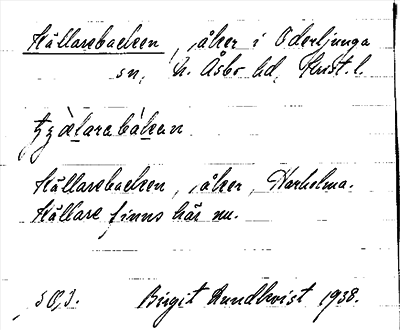 Källarebacken, åker i Oderljunga
sn, N. Åsbo hd, Krist. l.
Källarebacken, åker, Harholma.
Källare finns här nu.
Birgit Rundkvist 1938.